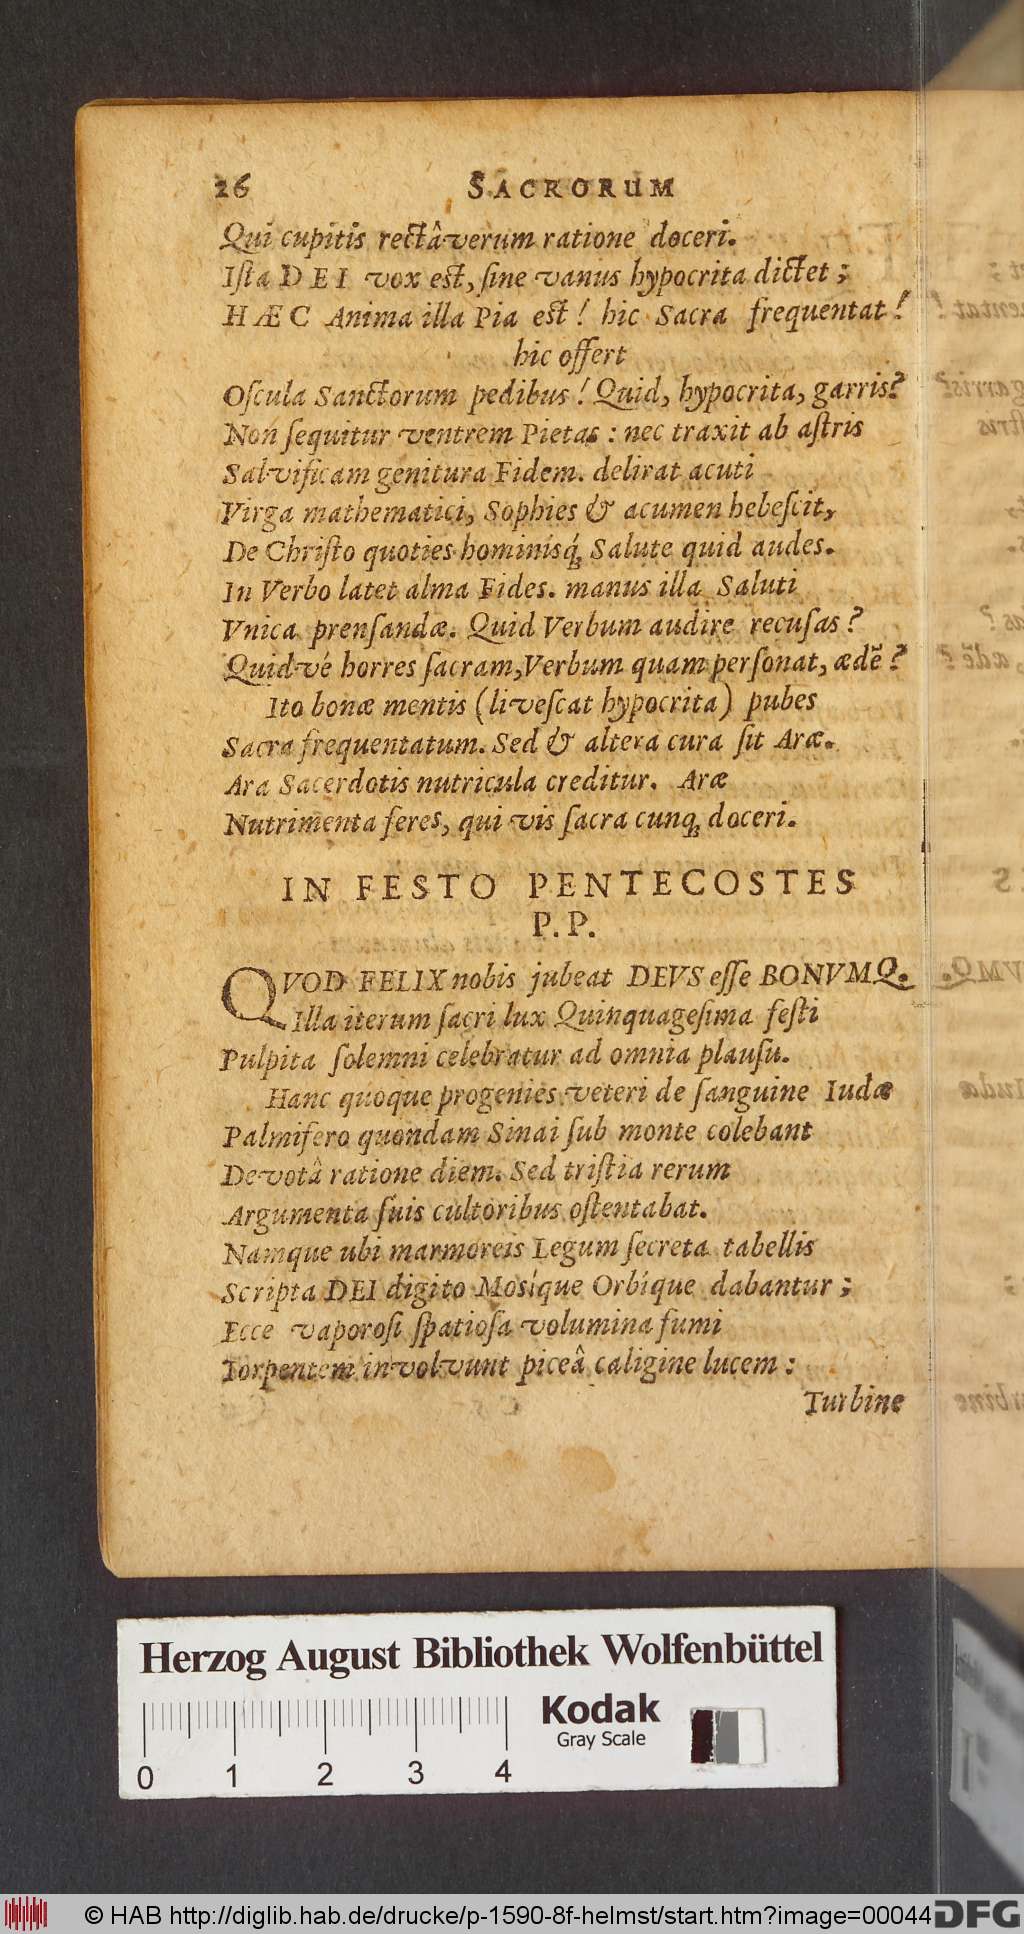 26 SACRORUM
Qui cupitis rectâ verum ratione doceri.
Iſta DEI vox eſt, ſine vanus hypocrita dictet;
HÆC Anima illa Pia eſt! hic Sacra frequentat!
hic offert
Oſcula Sanctorum pedibus! Quid, hypocrita, garris?
Non ſequitur ventrem Pietas: nec traxit ab aſtris
Salvificam genitura Fidem. delirat acuti
Virga mathematici, Sophies & acumen hebeſcit,
De Chriſto quoties hominísq́ꝫ Salute quid audes.
In Verbo latet alma Fides. manus illa Saluti
Vnica prenſandæ. Quid Verbum audire recuſas?
Quid vé horres ſacram, Verbum quam perſonat, ædẽ?
Ito bonæ mentis (liveſcat hypocrita) pubes
Sacra frequentatum. Sed & altera cura ſit Aræ.
Ara Sacerdotis nutricula creditur. Aræ
Nutrimenta feres, qui vis ſacra cunqꝫ doceri.
IN FESTO PENTECOSTES
P. P.
QVOD FELIX nobis jubeat DEVS eſſe BONVMQ.
Illa iterum ſacri lux Quinquageſima feſti
Pulpita ſolemni celebratur ad omnia plauſu.
Hanc quoque progenies veteri de ſanguine Iudæ
Palmifero quondam Sinai ſub monte colebant
Devotâ ratione diem. Sed triſtia rerum
Argumenta ſuis cultoribus oſtentabat.
Namque ubi marmoreis Legum ſecreta tabellis
Scripta DEI digito Mosíque Orbíque dabantur;
Ecce vaporoſi ſpatioſa volumina fumi
Torpentem involvunt piceâ caligine lucem:
Turbine
Herzog August Bibliothek Wolfenbüttel
Kodak
Gray Scale
0 1 2 3 4
© HAB http://diglib.hab.de/drucke/p-1590-8f-helmst/start.htm?image=00044
DFG